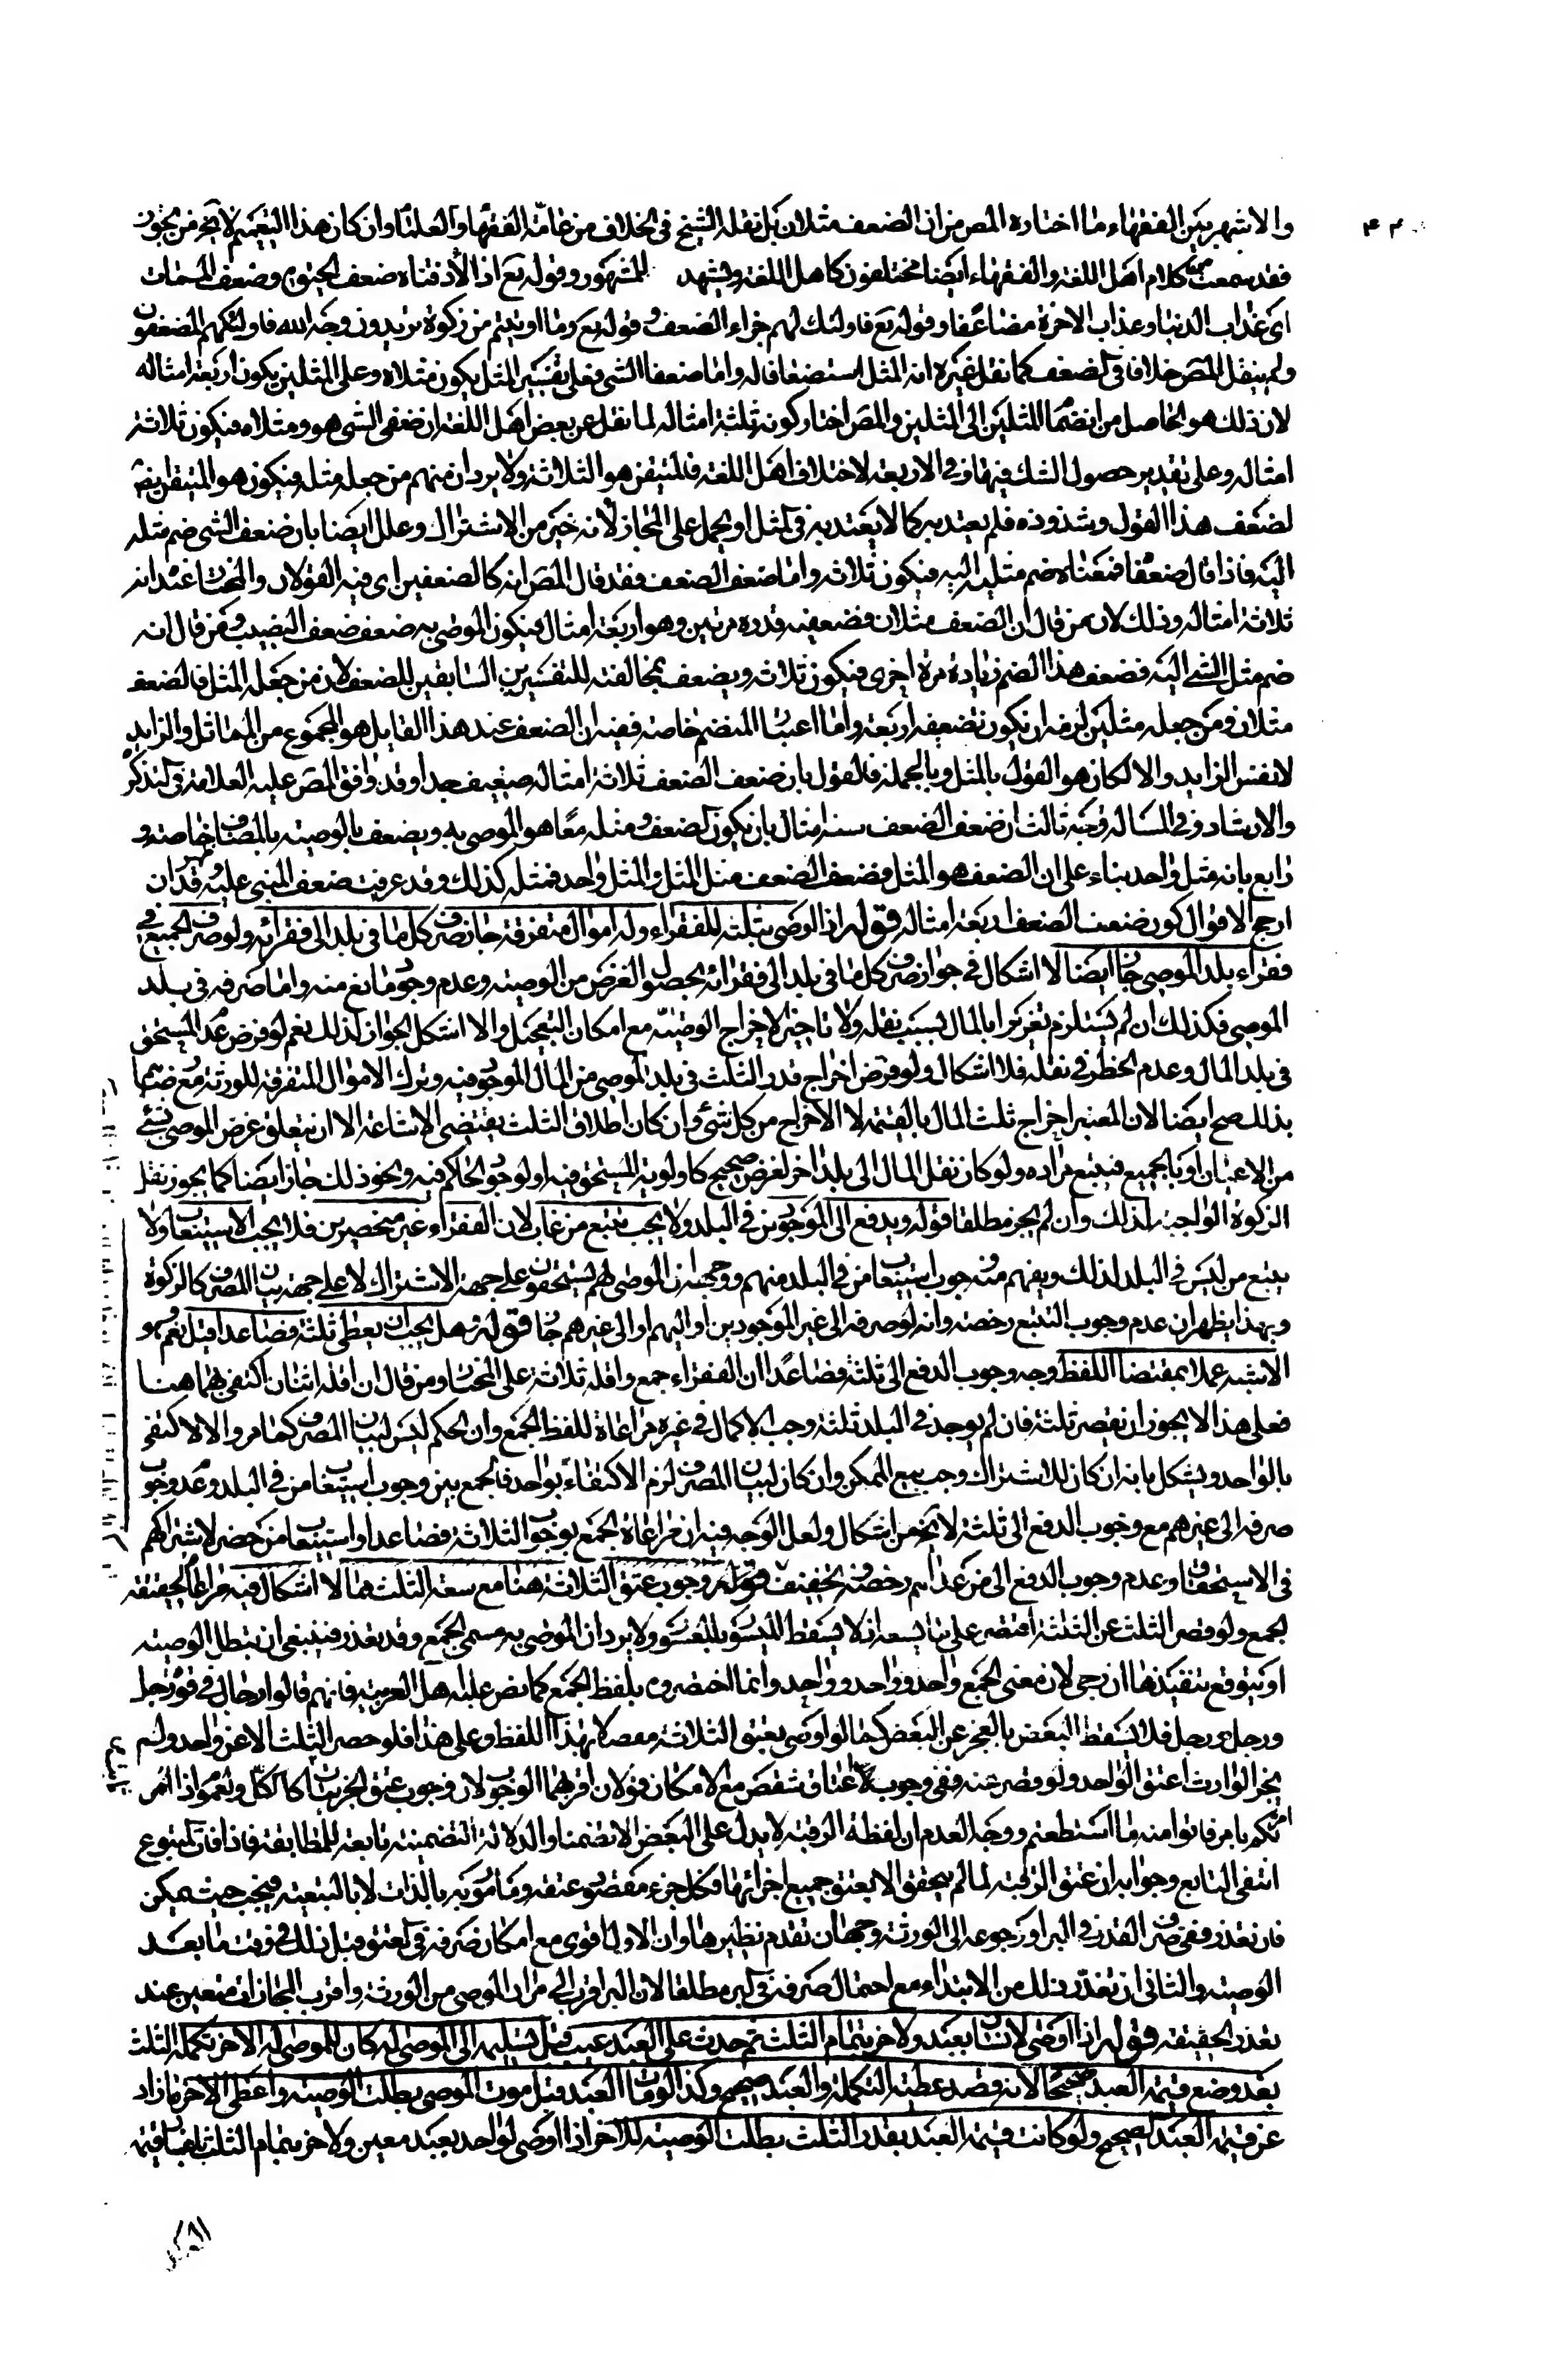 والاشهر بين الفقهاء ما اختاره المص من ان الضعف مثلان بل نقله الشيخ في الخلاف من عامة الفقهاء والعلماء وان كان هذا التعميم لا يخ من تجوز
فقد سمعت كلام اهل اللغة والفقهاء ايضا مختلفون كاهل اللغة ويشهد للمشهور قوله تع اذا لأذقناك ضعف الحيوة وضعف الممات
اى عذاب الدنيا وعذاب الاخرة مضاعفا وقوله تع فاولئك لهم جزاء الضعف وقوله تع وما اوتيتم من زكوة تريدون وجه الله فاولئك هم المضعفون
ولم ينقل المص خلافا في الضعف كما نقل غيره انه المثل استضعافا له واما ضعفا الشئ فعلى تفسير المثل يكون مثلاه وعلى المثلين يكون اربعة امثاله
لان ذلك هو الحاصل من انضمام المثلين الى المثلين والمص اختار كونه ثلثة امثاله لما نقل عن بعض اهل اللغة ان ضعفى الشئ هو ومثلاه فيكون ثلاثة
امثاله وعلى تقدير حصول الشك فيها وفي الاربعة لاختلاف اهل اللغة فالمتيقن هو الثلاثة ولا يرد ان منهم من جعله مثله فيكون هو المتيقن
لضعف هذا القول وشذوذه فلم يعتد به كما لا يعتد به في المثل او يحمل على المجاز لانه خير من الاشتراك وعلل ايضا بان ضعف الشئ ضم مثله
اليه فاذا قال ضعفا فمعناه ضم مثليه اليه فيكون ثلاثة واما ضعف الضعف فقد قال المص انه كالضعفين اى فيه القولان والمختار عنده انه
ثلاثة امثاله وذلك لان من قال ان الضعف مثلان فضعفيه قدره مرتين وهو اربعة امثال فيكون الموصى به ضعف ضعف النصيب ومن قال انه
ضم مثل الشئ اليه فضعف هذا الضم زيادة مرة اخرى فيكون ثلاثة ويضعف بمخالفته للتفسيرين السابقين للضعف لان من جعله المثل فالضعف
مثلان ومن جعله مثلين لزمه ان يكون تضعيفه اربعة واما اعتبار المنضم خاصة ففيه ان الضعف عند هذا القايل هو المجموع من المماثل والزايد
لا نفس الزايد والا لكان هو القول بالمثل وبالجملة فالقول بان ضعف الضعف ثلاثة امثاله ضعيف جدا وقد وافق المص عليه العلامة في التذكرة
والارشاد وفي المسالة وجه ثالث ان ضعف الضعف ستة امثال بان يكون الضعف ومثله معا هو الموصى به ويضعف بالوصية بالمضاف خاصة و
رابع بانه مثل واحد بناء على ان الضعف هو المثل فضعف الضعف مثل المثل والمثل واحد فمثله كذلك وقد عرفت ضعف المبنى عليه وقد ان
ارجح الاقوال كون ضعف الضعف اربعة امثاله قوله اذا اوصى بثلثه للفقراء وله اموال متفرقة جاز صرف كل ما في بلد الى فقرائه ولو صرف الجميع في
فقراء بلد الموصى جاز ايضا لا اشكال في جواز صرف كل ما في بلد الى فقرائه لحصول الغرض من الوصية وعدم وجود مانع منه واما صرفه في بلد
الموصى فكذلك ان لم يستلزم تغريرا بالمال بسبب نقله ولا تاخيرا لاخراج الوصية مع امكان التعجيل والا اشكل الجواز لذلك نعم لو فرض عدم المستحق
في بلد المال وعدم الخطر في نقله فلا اشكال ولو فرض اخراج قدر الثلث في بلد الموصى من المال الموجود فيه وترك الاموال المتفرقة للورثة مع رضاهم
بذلك صح ايضا لان المعتبر اخراج ثلث المال بالقيمة لا الاخراج من كل شئ وان كان اطلاق الثلث يقتضى الاشاعة الا ان يتعلق غرض الموصى بشئ
من الاعيان او بالجميع فيتبع مراده ولو كان نقل المال الى بلد اخر لغرض صحيح كاولوية المستحق فيه او لوجود الحاكم فيه ونحو ذلك جاز ايضا كما يجوز نقل
الزكوة الواجبة لذلك وان لم يجز مطلقا قوله ويدفع الى الموجودين في البلد ولا يجب تتبع من غاب لان الفقراء غير منحصرين فلا يجب الاستيعاب ولا
يتبع من ليس في البلد لذلك ويفهم منه وجوب استيعاب من في البلد منهم ووجهه ان الموصى لهم يستحقون على جهة الاشتراك لا على جهة بيان المصرف كالزكوة
وبهذا يظهر ان عدم وجوب التتبع رخصة وانه لو صرفه الى غير الموجودين او اليهم او الى غيرهم جاز قوله وهل يجب ان يعطى ثلثة فصاعدا قيل نعم وهو
الاشبه عملا بمقتضا اللفظ وجه وجوب الدفع الى ثلثة فصاعدا ان الفقراء جمع واقله ثلاثة على المختار ومن قال ان اقله اثنان اكتفى بهما هنا
فعلى هذا لا يجوز ان يقصر ثلثة فان لم يوجد في البلد ثلثة وجب الاكمال في غيره مراعاة للفظ الجمع وان الحكم ليس لبيان المصرف كما مر والا لاكتفى
بالواحد ويشكل بانه ان كان للاشتراك وجب تتبع الممكن وان كان لبيان المصرف لزم الاكتفاء بواحد فالجمع بين وجوب استيعاب من في البلد وعدم وجوب
صرفه الى غيرهم مع وجوب الدفع الى ثلثة لا يخ من اشكال ولعل الوجه فيه ان مراعاة الجمع يوجب الثلاثة فصاعدا واستيعاب من حضر لاشتراكهم
في الاستحقاق وعدم وجوب الدفع الى من عداهم رخصة وتخفيف قوله وجوب عتق الثلاثة هنا مع سعة الثلث مما لا اشكال فيه مراعاة لحقيقة
الجمع ولو قصر الثلث عن الثلثة اقتصر على ما يسعه اذ لا يسقط الميسور بالمعسور ولا يرد ان الموصى به مسمى الجمع وقد تعذر فينبغى ان تبطل الوصية
او يتوقع تنفيذها ان رجى لان معنى الجمع واحد وواحد وواحد وانما اختصروه بلفظ الجمع كما نص عليه اهل العربية فانهم قالوا رجال في قوة رجل
ورجل ورجل فلا يسقط البعض بالعجز عن البعض كما لو اوصى بعتق الثلاثة مفصلا بهذا اللفظ وعلى هذا فلو حصر الثلث الا عن واحد ولم
يجز الوارث اعتق الواحد ولو قصر عنه ففى وجوب اعتاق شقص مع الامكان قولان اقربهما الوجوب لان وجوب عتق الجزء كالكل ولعموم اذا
امرتكم بامر فاتوا منه ما استطعتم ووجه العدم ان لفظة الرقبة لا يدل على البعض الا تضمنا والدلالة التضمنية تابعة للمطابقة فاذا فات المتبوع
انتفى التابع وجوابه ان عتق الرقبة لما لم يتحقق الا بعتق جميع اجزائها فكل جزء مقصود عتقه ومامور به بالذات لا بالتبعية فيجب حيث يمكن
فان تعذر ففى صرف القدر في البر او رجوعه الى الورثة وجهان تقدم نظيرها وان الاول اقوى مع امكان صرفه في العتق قبل ذلك في وقت ما بعد
الوصية والثانى ان تعذر ذلك من الابتداء مع احتمال صرفه في البر مطلقا لان البر اقرب الى مراد الموصى من الورثة واقرب المجازات متعين عند
تعذر الحقيقة قوله اذا اوصى لانسان بعبد ولاخر بتمام الثلث ثم حدث على العبد عيب قبل تسليمه الى الموصى له كان للموصى له الاخر تكملة الثلث
بعد وضع قيمة العبد صحيحا لانه قصد عطية التكملة والعبد صحيح وكذا لو مات العبد قبل موت الموصى بطلت الوصية واعطى الاخر ما زاد
عن قيمة العبد الصحيح ولو كانت قيمة العبد بقدر الثلث بطلت الوصية للاخر اذا اوصى لواحد بعبد معين ولاخر بتمام الثلث